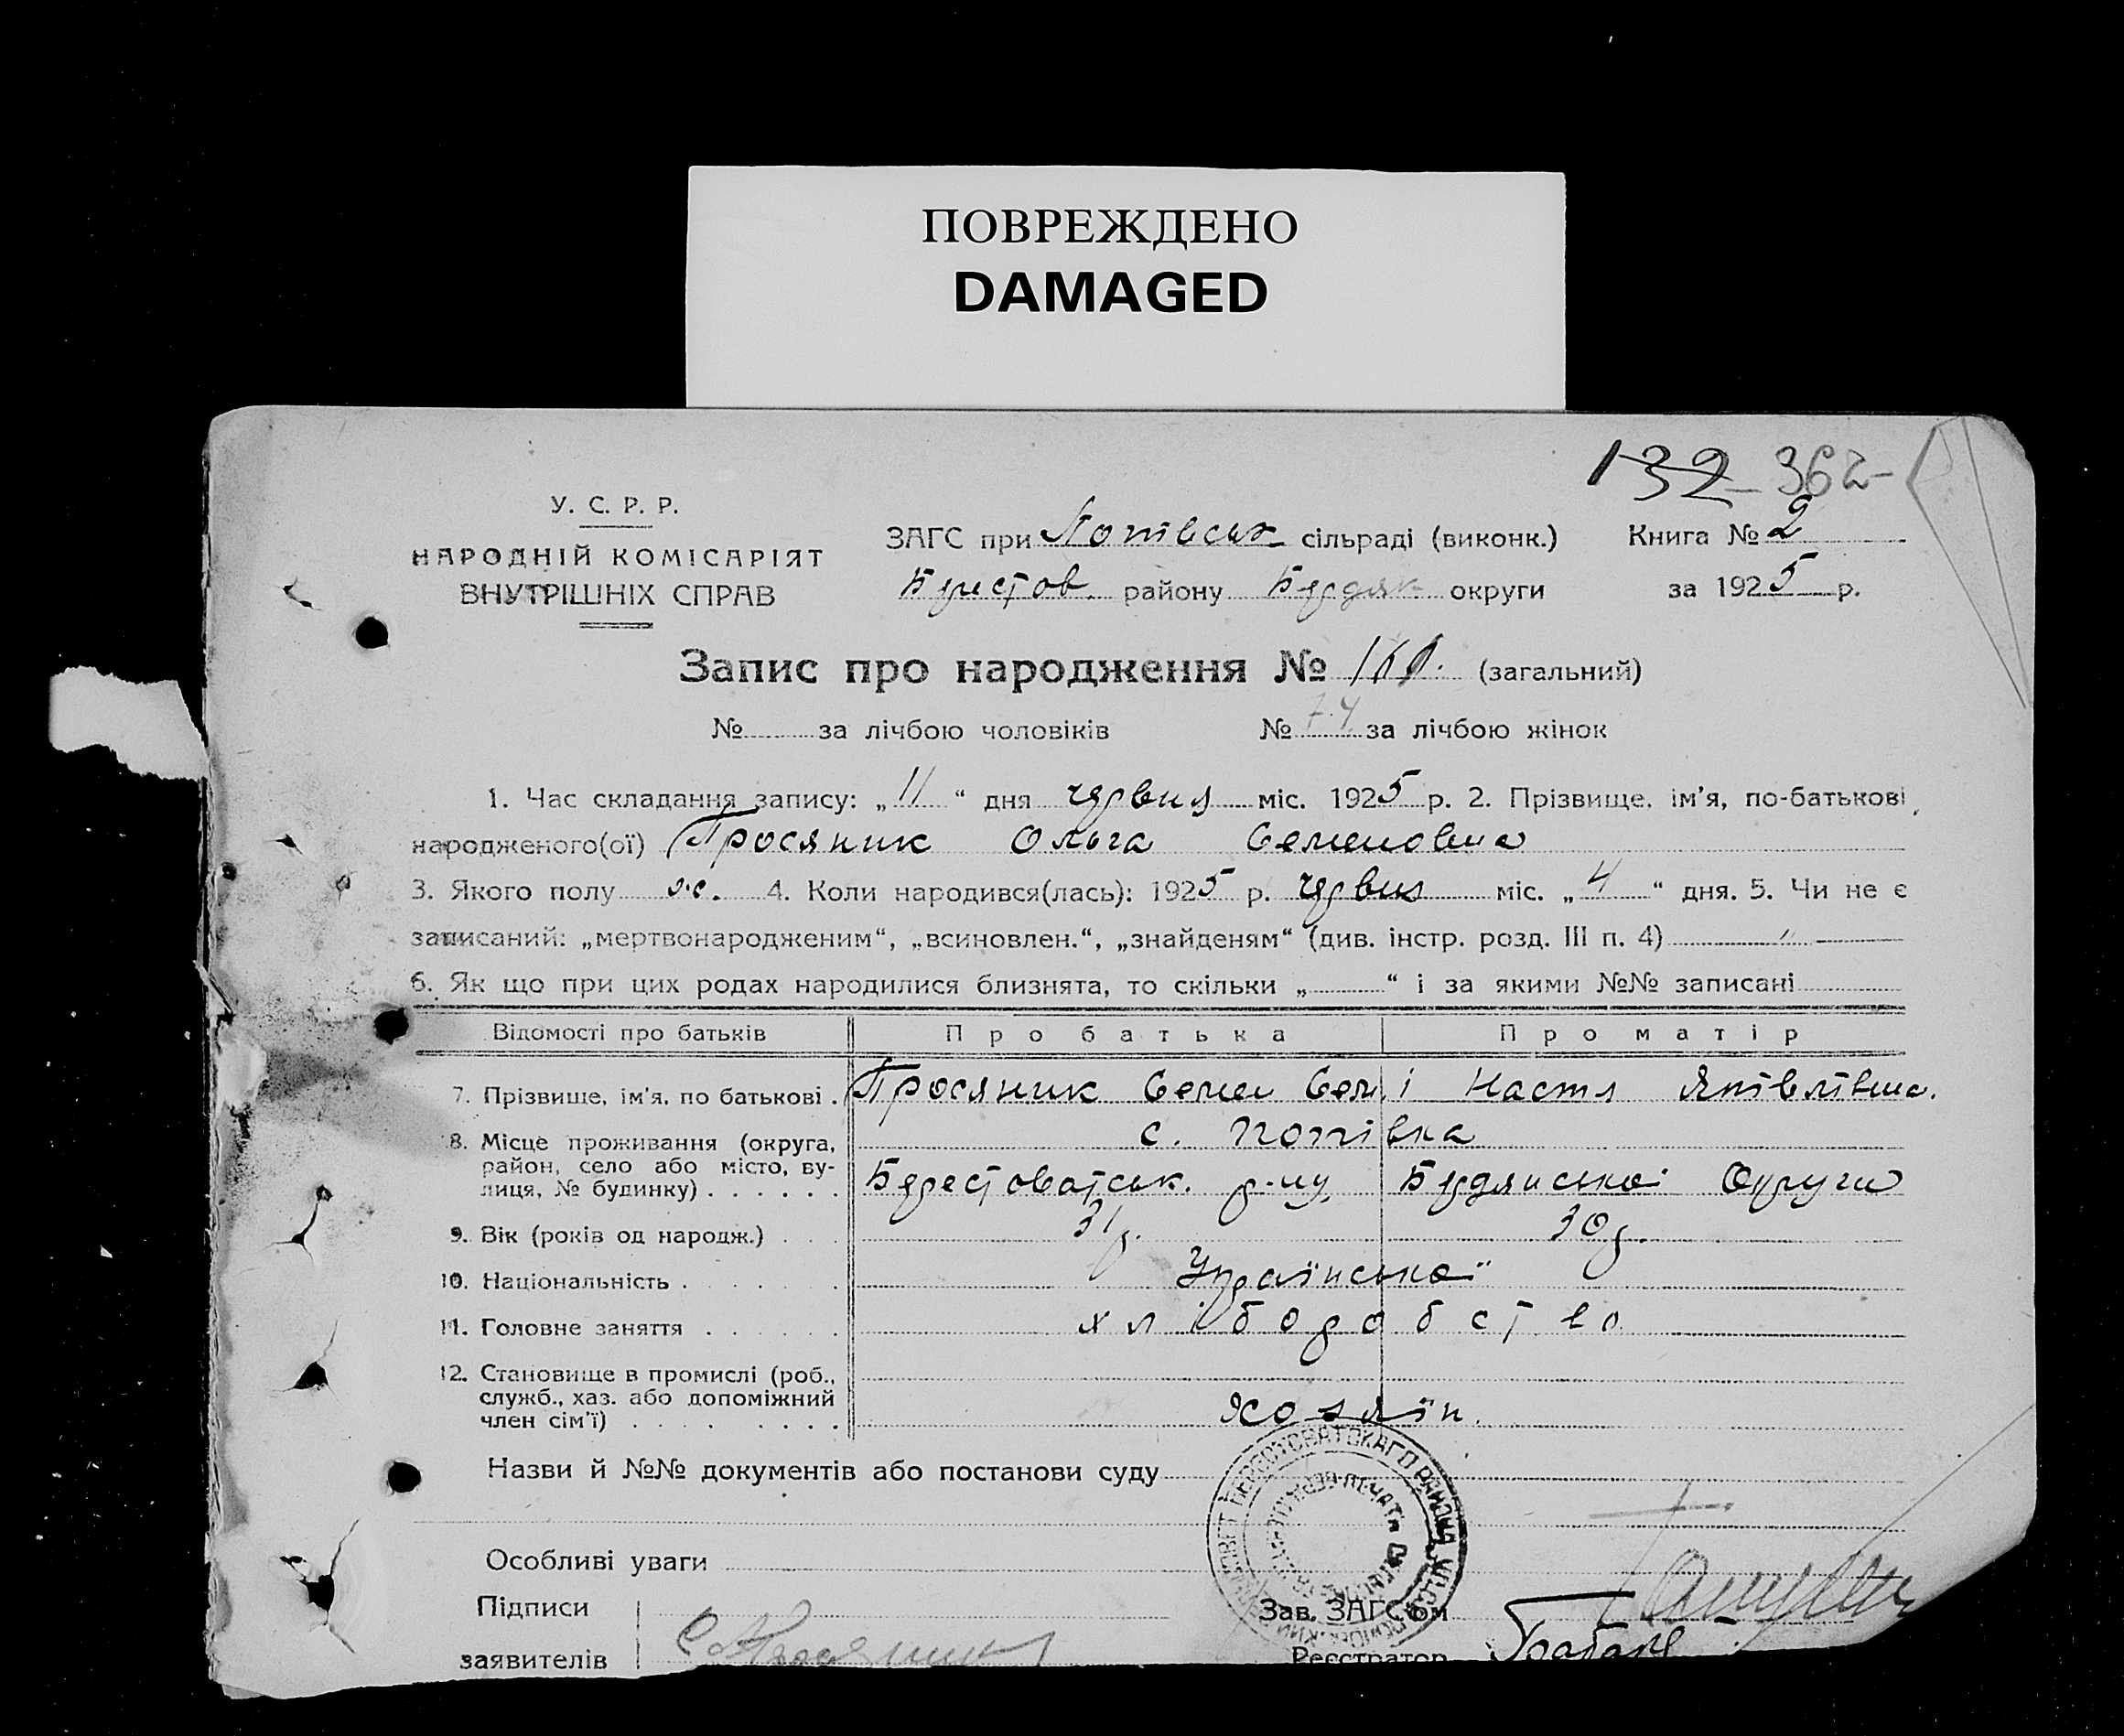 ПОВРЕЖДЕНО
DAMAGED
132 362
У. С. Р. Р.
НАРОДНІЙ КОМІСАРІЯТ
ВНУТРІШНІХ СПРАВ
ЗАГС при Попівськ сільраді (виконк.) Книга № 2
Берестов. району Бердянк округи за 1925 р.
Запис про народження № (загальний)
№ за лічбою чоловіків № 74 за лічбою жінок
1. Час складання запису: „11“ дня червня міс. 1925 р. 2. Прізвище, ім’я, по-батькові
народженого(ої) Просяник Ольга Семеновна
3. Якого полу ж. 4. Коли народився(лась): 1925 р. червня міс. „4“ дня. 5. Чи не є
записаний: „мертвонародженим“, „всиновлен.“, „знайденям“ (див. інстр. розд. III п. 4) „
6. Як що при цих родах народилися близнята, то скільки „ “ і за якими №№ записані
Відомості про батьків Про батька Про матір
7. Прізвище, ім’я, по батькові . Просяник Семен Сем. і Настя
8. Місце проживання (округа, район, село або місто, вулиця, № будинку) . . . . . . с. Попівка
Берестоватськ. р-ну, Бердянської Округи
9. Вік (років од народж.) . . . 31 р. 30 р.
10. Національність . . . . . . Української
11. Головне заняття . . . . . . хліборобство
12. Становище в промислі (роб., служб., хаз. або допоміжний член сім’ї) . . . . . . . . Хозяїн.
Назви й №№ документів або постанови суду
Особливі уваги
Підписи
заявителів С Просяник
Зав. ЗАГС’ом
Реєстратор